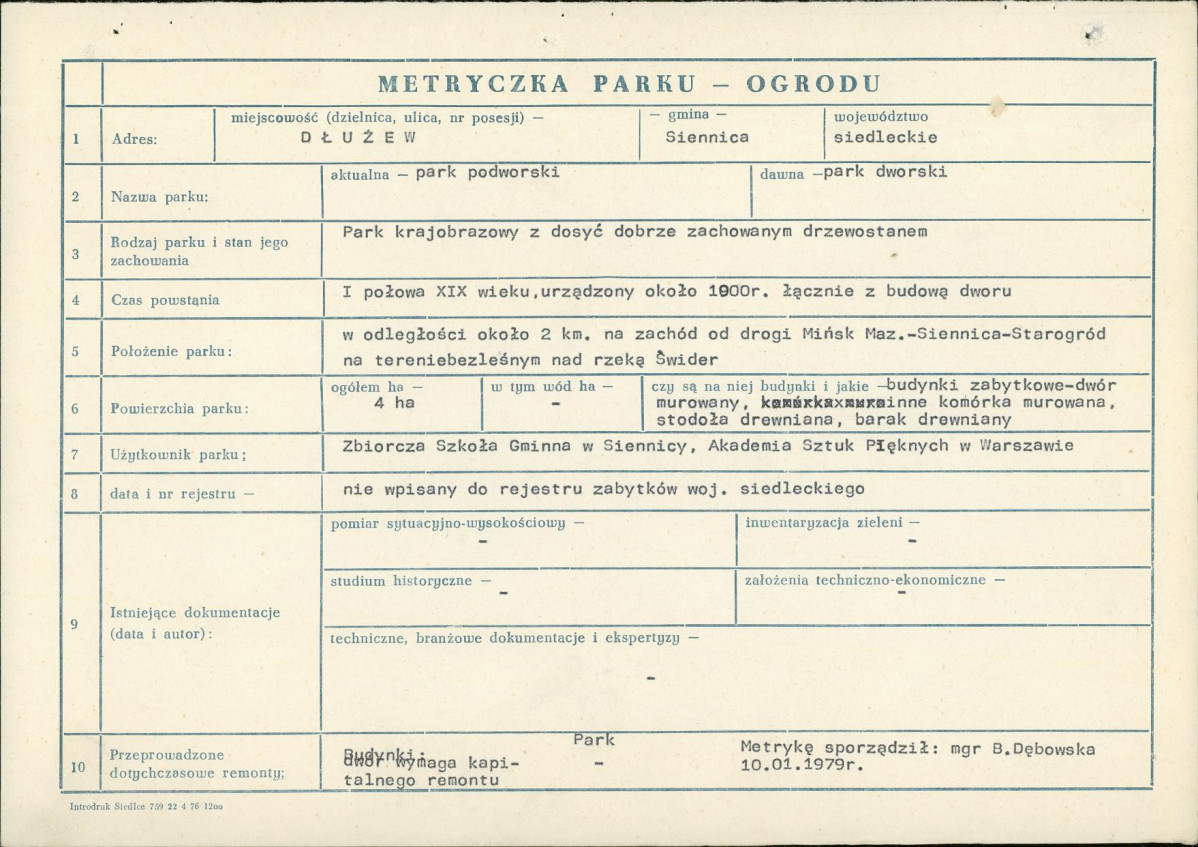 METRYCZKA PARKU — OGRODU
1 Adres: miejscowość (dzielnica, ulica, nr posesji) — DŁUŻEW — gmina — Siennica województwo siedleckie
2 Nazwa parku: aktualna — park podworski dawna — park dworski
3 Rodzaj parku i stan jego zachowania Park krajobrazowy z dosyć dobrze zachowanym drzewostanem
4 Czas powstania I połowa XIX wieku,urządzony około 1900r. łącznie z budową dworu
5 Położenie parku: w odległości około 2 km. na zachód od drogi Mińsk Maz.-Siennica-Starogród
na tereniebezleśnym nad rzeką Świder
6 Powierzchia parku: ogółem ha — 4 ha w tym wód ha — - czy są na niej budynki i jakie —budynki zabytkowe-dwór
murowany, inne komórka murowana,
stodoła drewniana, barak drewniany
7 Użytkownik parku; Zbiorcza Szkoła Gminna w Siennicy, Akademia Sztuk Pięknych w Warszawie
8 data i nr rejestru — nie wpisany do rejestru zabytków woj. siedleckiego
9 Istniejące dokumentacje (data i autor):
pomiar sytuacyjno-wysokościowy — -
inwentaryzacja zieleni — -
studium historyczne — -
założenia techniczno-ekonomiczne — -
techniczne, branżowe dokumentacje i ekspertyzy —
-
10 Przeprowadzone dotychczasowe remonty;
Budynki:
dwór wymaga kapi-
talnego remontu
Park
-
Metrykę sporządził: mgr B.Dębowska
10.01.1979r.
Introdruk Siedlce 759 22 4 76 12oo